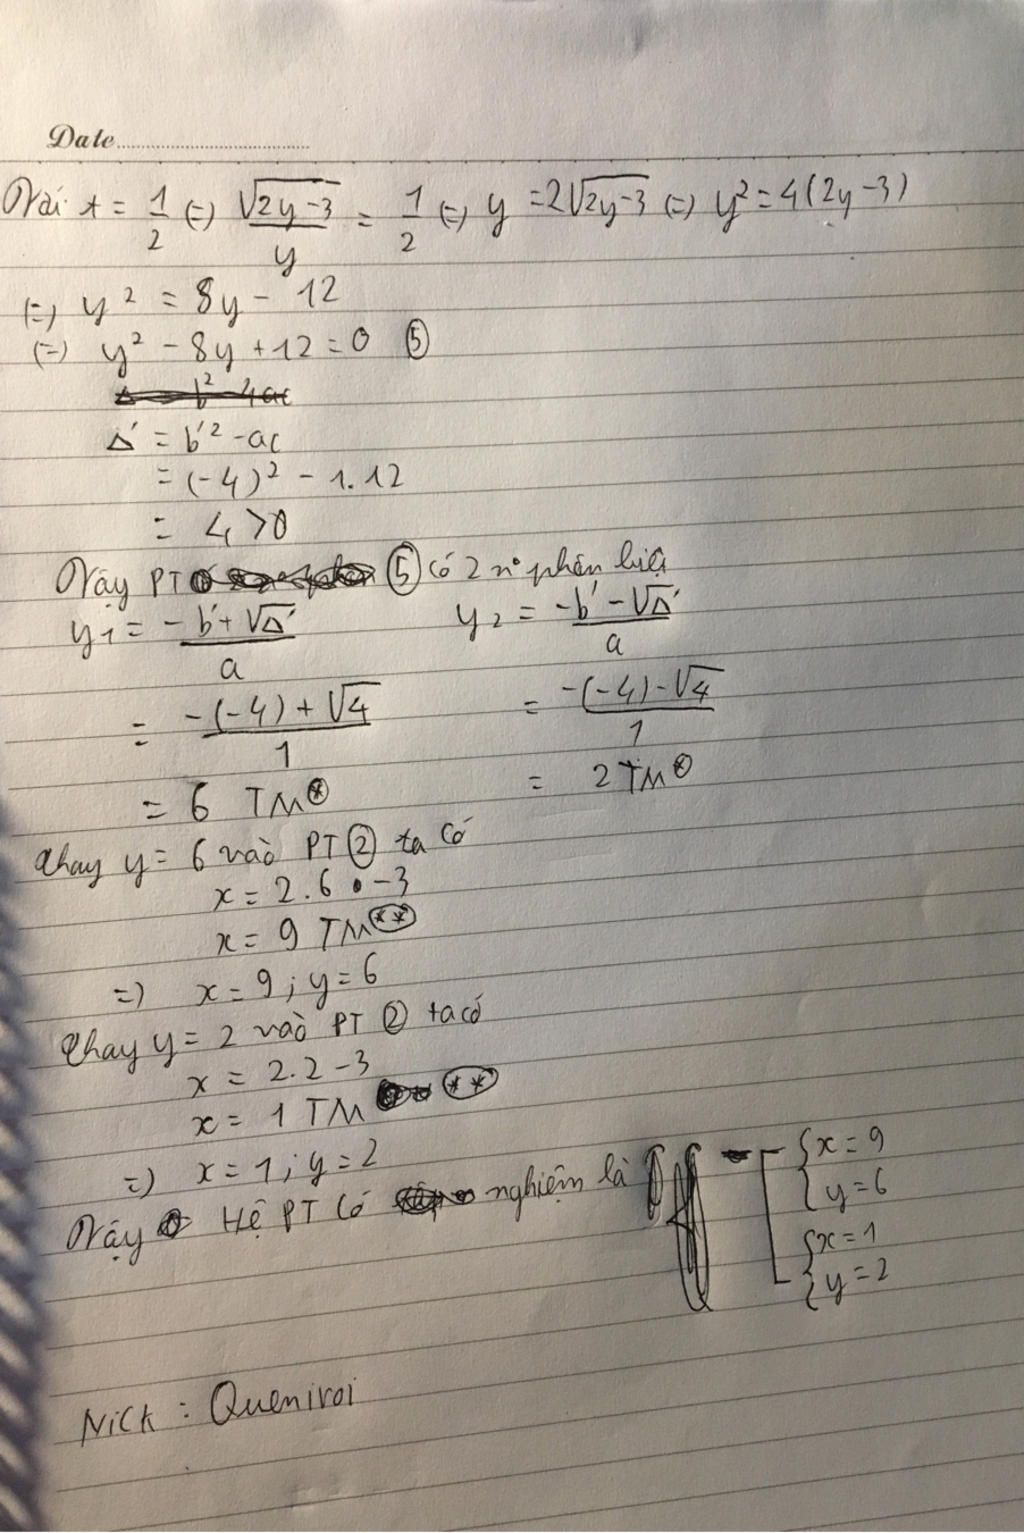 Date
Với t = 1/2 (=) √(2y-3)/y = 1/2 (=) y = 2√(2y-3) (=) y² = 4(2y-3)
(=) y² = 8y - 12
(=) y² - 8y + 12 = 0 ⑤
Δ' = b'² - ac
= (-4)² - 1.12
= 4 > 0
Vậy PT ⑤ có 2 n° phân biệt
y₁ = (-b' + √Δ')/a y₂ = (-b' - √Δ')/a
= (-(-4) + √4)/1 = (-(-4) - √4)/1
= 6 TM (*) = 2 TM (*)
Thay y = 6 vào PT ② ta có
x = 2.6 - 3
x = 9 TM (**)
=) x = 9 ; y = 6
Thay y = 2 vào PT ② ta có
x = 2.2 - 3
x = 1 TM (**)
=) x = 1 ; y = 2
Vậy Hệ PT có nghiệm là [ { x = 9
y = 6
{ x = 1
y = 2
Nick : Quenivoi